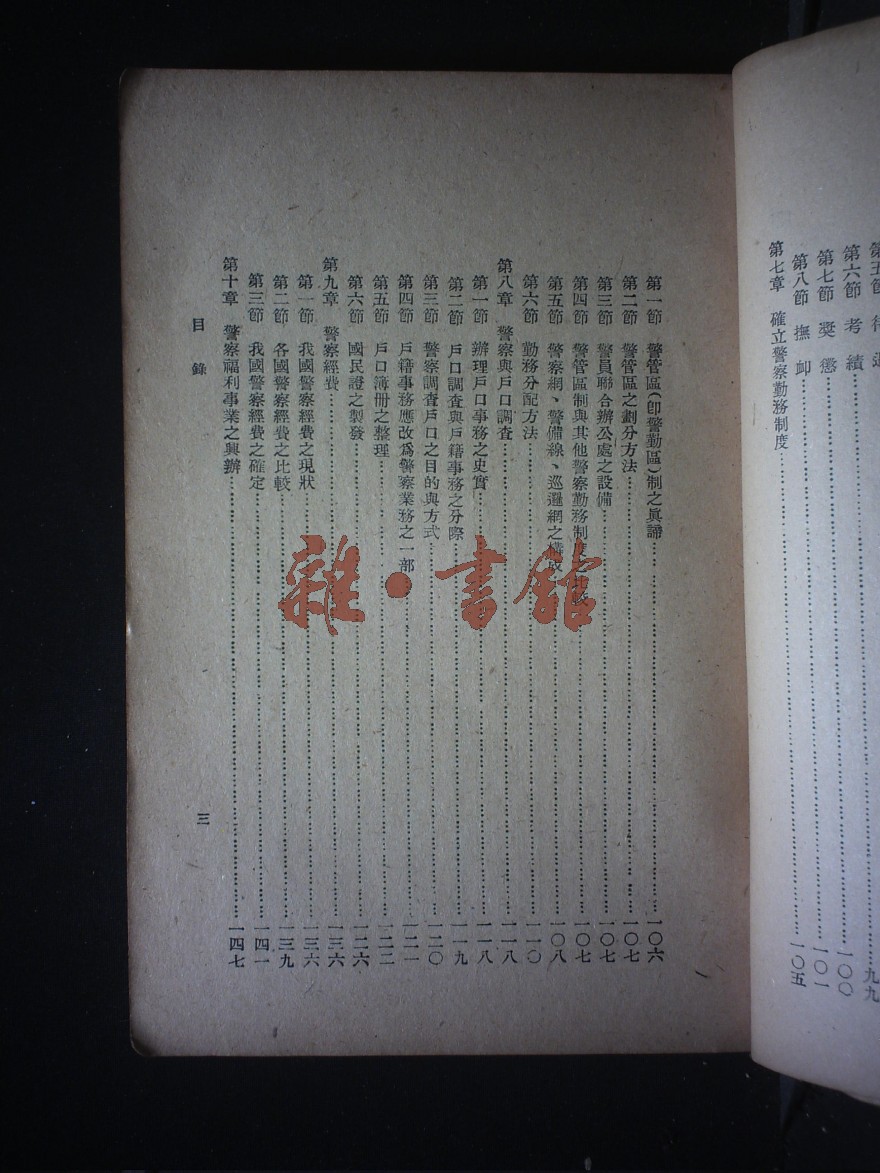 第六節 考績……一〇〇
第七節 奬懲……一〇一
第八節 撫卹
第七章 確立警察勤務制度……一〇五
第一節 警管區(卽警勤區)制之眞諦……一〇六
第二節 警管區之劃分方法……一〇七
第三節 警員聯合辦公處之設備……一〇七
第四節 警管區制與其他警察勤務制度之比較……一〇七
第五節 警察網、警備線、巡邏網之構成……一〇八
第六節 勤務分配方法……一一〇
第八章 警察與戶口調查……一一八
第一節 辦理戶口事務之史實……一一八
第二節 戶口調查與戶籍事務之分際……一一九
第三節 警察調查戶口之目的與方式……一二〇
第四節 戶籍事務應改爲警察業務之一部……一二一
第五節 戶口簿册之整理……一二二
第六節 國民證之製發……一二六
第九章 警察經費……一三六
第一節 我國警察經費之現狀……一三六
第二節 各國警察經費之比較……一三九
第三節 我國警察經費之確定……一四一
第十章 警察福利事業之興辦……一四七
目錄
三
雜·書館